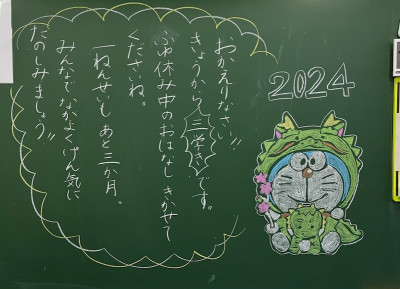 おかえりなさい!!
きょうから三学きです。
ふゆ休み中のおはなし きかせて
くださいね。
一ねんせいも あと三か月。
みんなで なかよく げん気に
たのしみましょう!!
2024